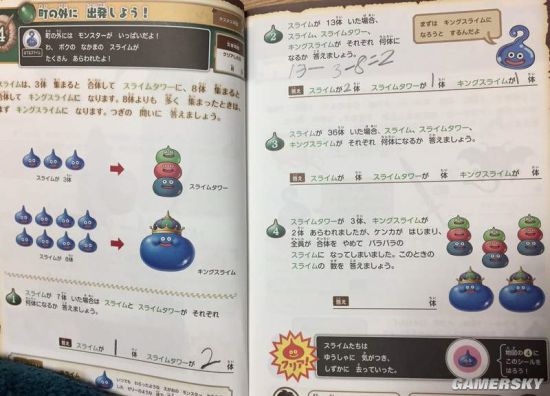 町の外に 出発しよう!
町の外には モンスターが いっぱいだよ!
わ、ボクの なかまの スライムが
たくさん あらわれたよ!
スライムは、3体 集まると 合体して スライムタワーに、8体 集まると
合体して キングスライムに なります。8体よりも 多く 集まったときは、
まず キングスライムに なります。つぎの 問いに 答えましょう。
スライム 3体
スライムタワー
スライム 8体
キングスライム
1
スライムが 7体 いた場合は スライムと スライムタワーが それぞれ
何体になるか 答えましょう。
答え スライムが 1 体 スライムタワーが 2 体
2
スライムが 13体 いた場合、
スライム、スライムタワー、
キングスライムが それぞれ 何体に
なるか 答えましょう。
まずは キングスライムに
なろうと するんだよ
13-3-8=2
答え スライムが 2 体 スライムタワーが 1 体 キングスライムが 1 体
3
スライムが 36体 いた場合、スライム、スライムタワー、
キングスライムが それぞれ 何体になるか 答えましょう。
答え スライムが 体 スライムタワーが 体 キングスライムが 体
4
スライムタワーが 3体、キングスライムが
2体 あらわれましたが、ケンカが はじまり、
全員が 合体を やめて バラバラの
スライムに なってしまいました。このときの
スライムの 数を 答えましょう。
答え 体
クリア!
スライムたちは
ゆうしゃに 気がつき、
しずかに 去っていった。
地図の 4 に
このシールを
はろう!
GAMERSKY